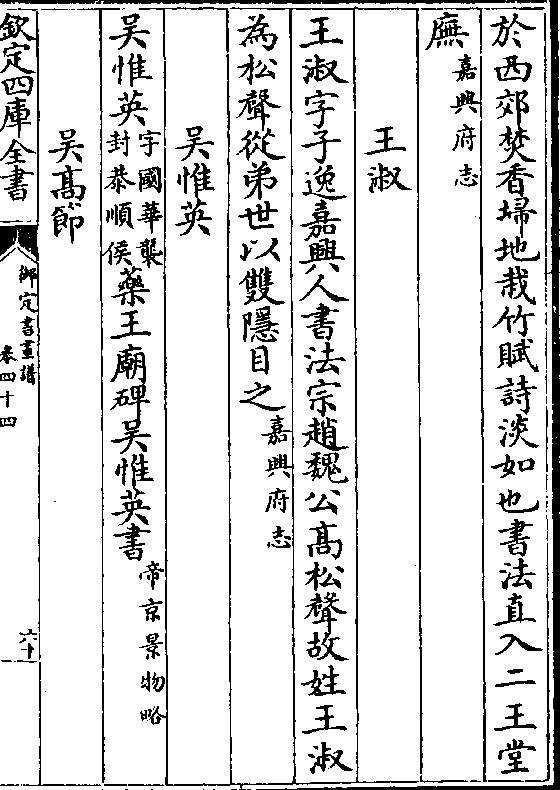 於西郊焚香埽地栽竹賦詩淡如也書法直入二王堂
廡嘉興府志
王淑
王淑字子逸嘉興人書法宗趙魏公髙松聲故姓王淑
為松聲從弟世以雙隱目之嘉興府志
吴惟英
吴惟英字國華襲封恭順侯藥王廟碑吴惟英書帝京景物略
吴髙節
欽定四庫全書
御定書畫譜
卷四十四
六十